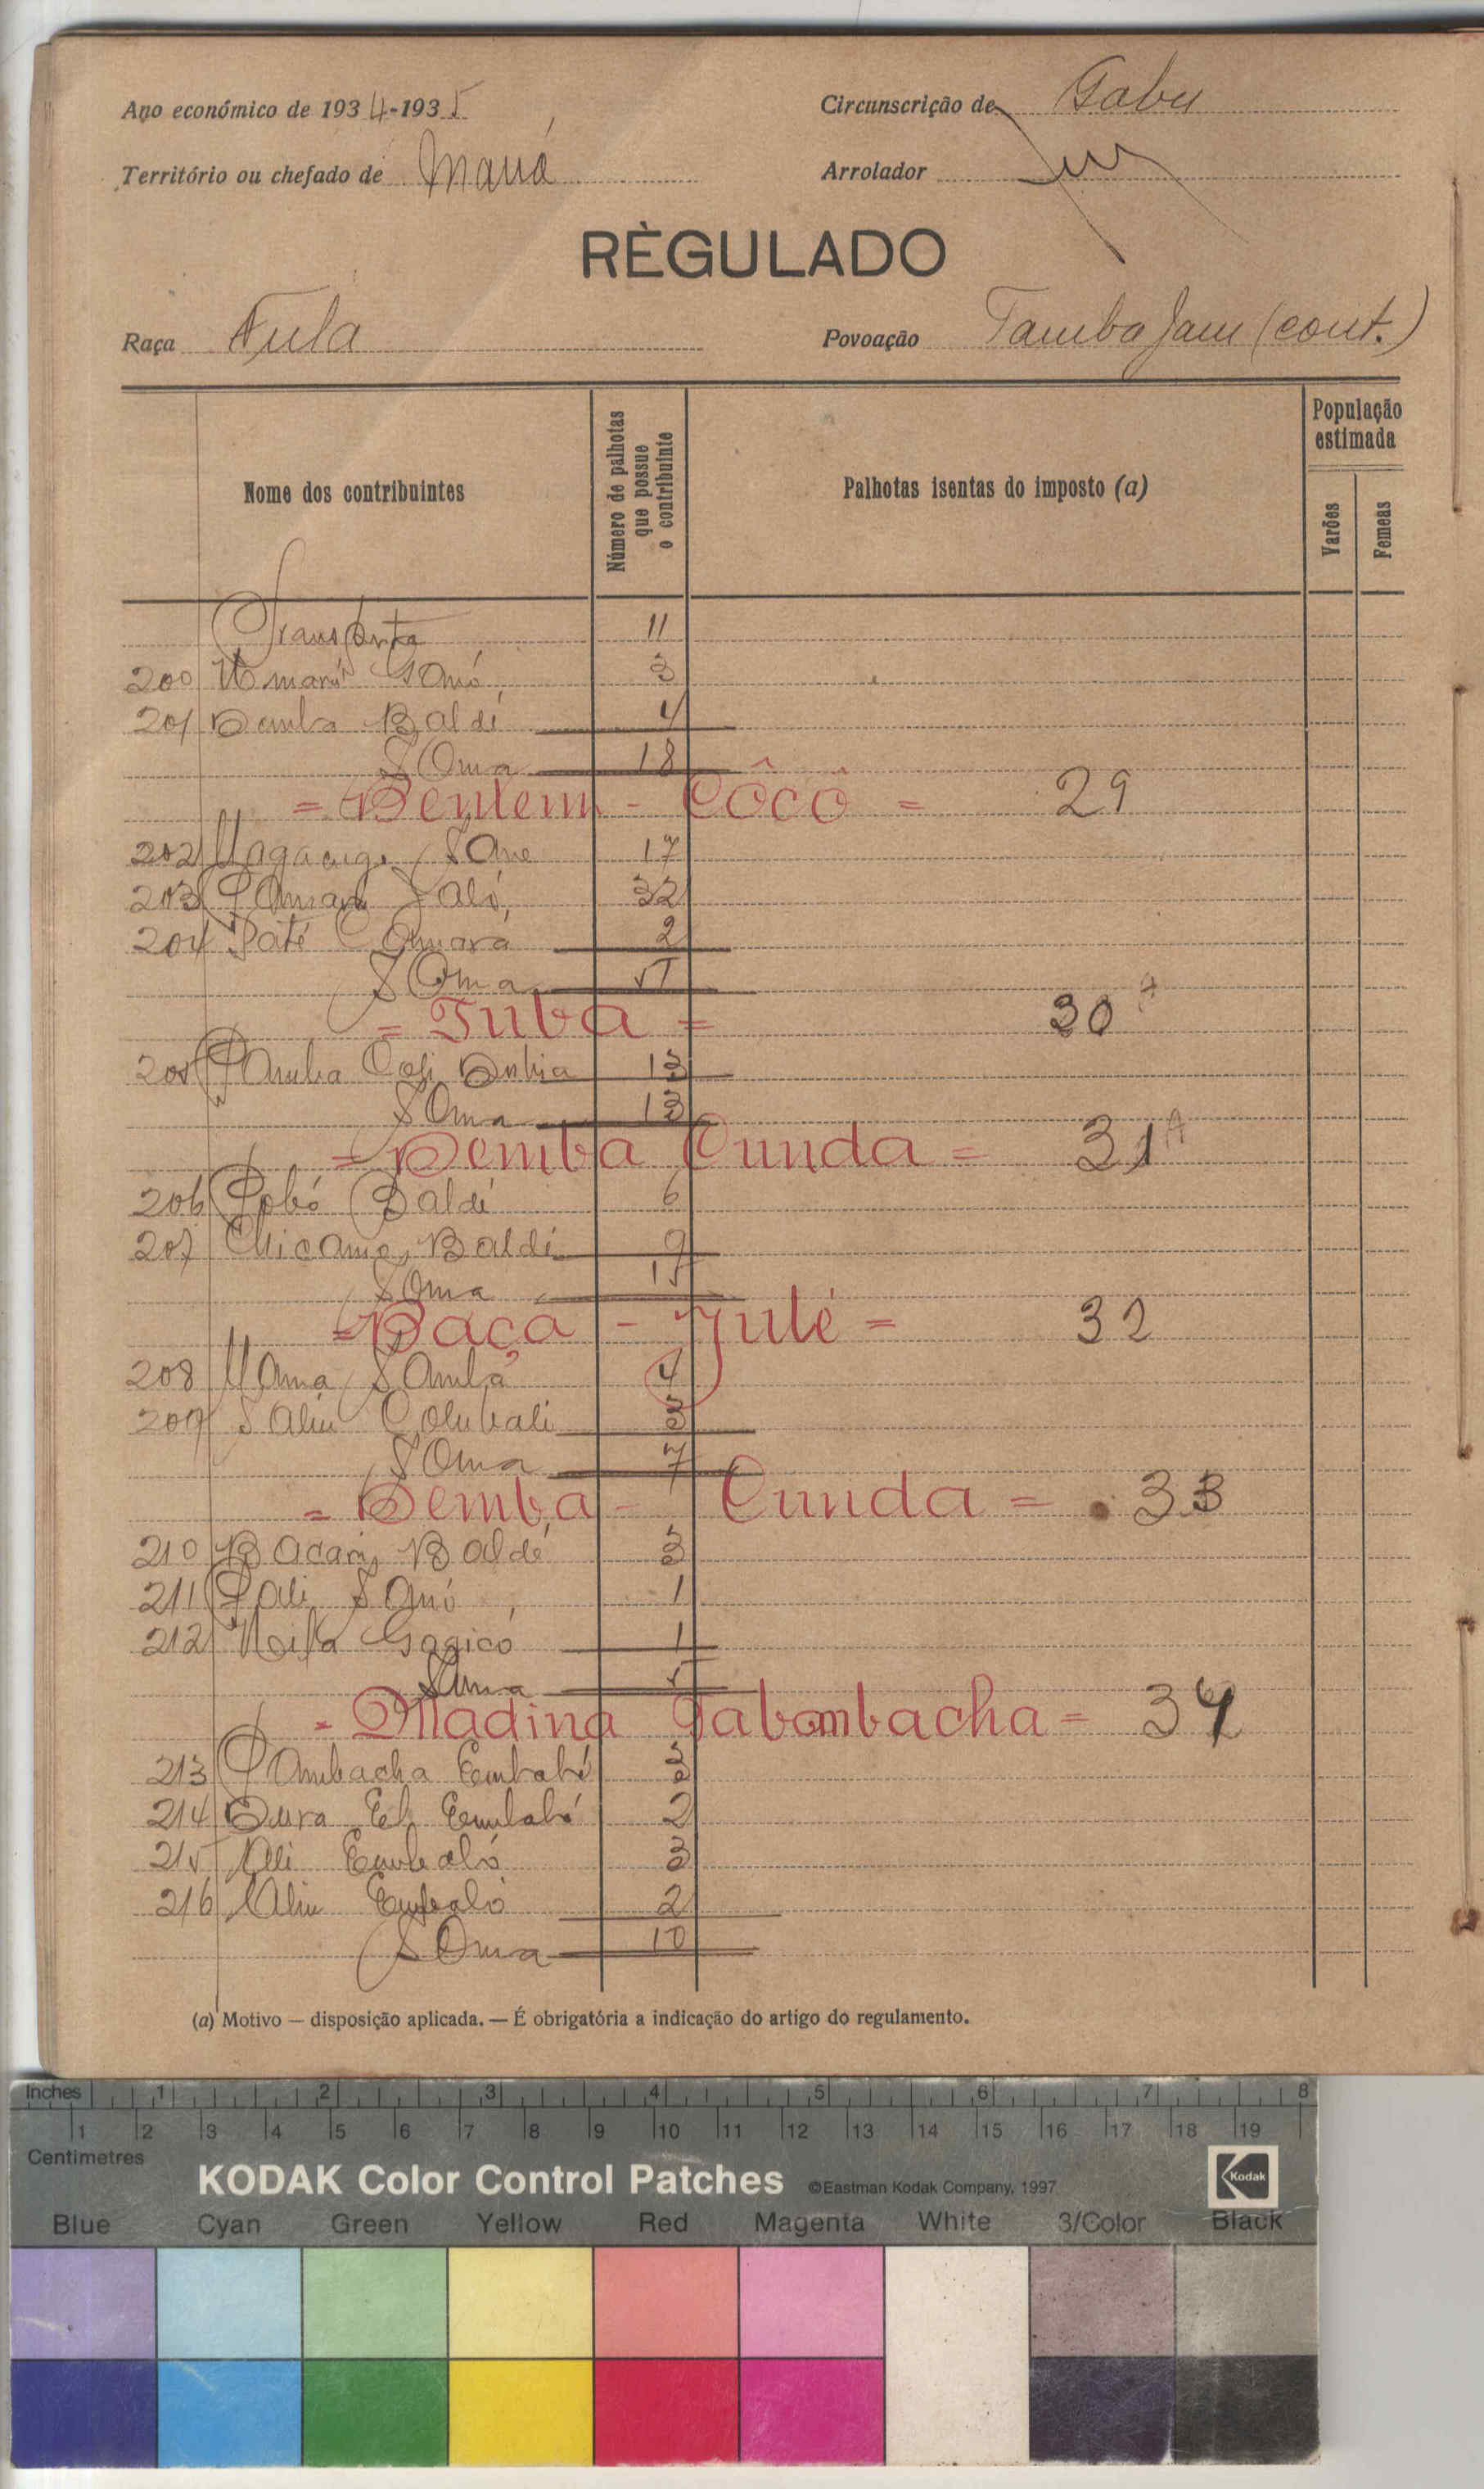 Ano económico de 1934-1935
Circunscrição de Gabu
Território ou chefado de Maná
Arrolador
RÈGULADO
Raça Fula
Povoação Tamba Jam (cont.)
Nome dos contribuintes
Número de palhotas que possue o contribuinte
Palhotas isentas do imposto (a)
População estimada
Varões
Femeas
Transporta 11
200 3
201 Demba Baldé 4
Soma 18
= Bentem - Côcô = 29
202 Sane 17
203 32
204 Paté Camará 2
Soma 51
= Tuba = 30 A
205 13
Soma 13
= Demba Cunda = 31 A
206 Baldé 6
207 Baldé 9
Soma 15
= Bacá - Julé = 32
208 Samba 4
209 Saliu Colubali 3
Soma 7
= Demba - Cunda = 33
210 Bacari Baldé 3
211 Sanó 1
212 1
Soma 5
= Madina Tabombacha = 34
213 Embaló 3
214 Embaló 2
215 Ali Embaló 3
216 Aliu Embaló 2
Soma 10
(a) Motivo — disposição aplicada. — É obrigatória a indicação do artigo do regulamento.
Inches 1 2 3 4 5 6 7 8
1 2 3 4 5 6 7 8 9 10 11 12 13 14 15 16 17 18 19
Centimetres
KODAK Color Control Patches ©Eastman Kodak Company, 1997 Kodak
Blue Cyan Green Yellow Red Magenta White 3/Color Black